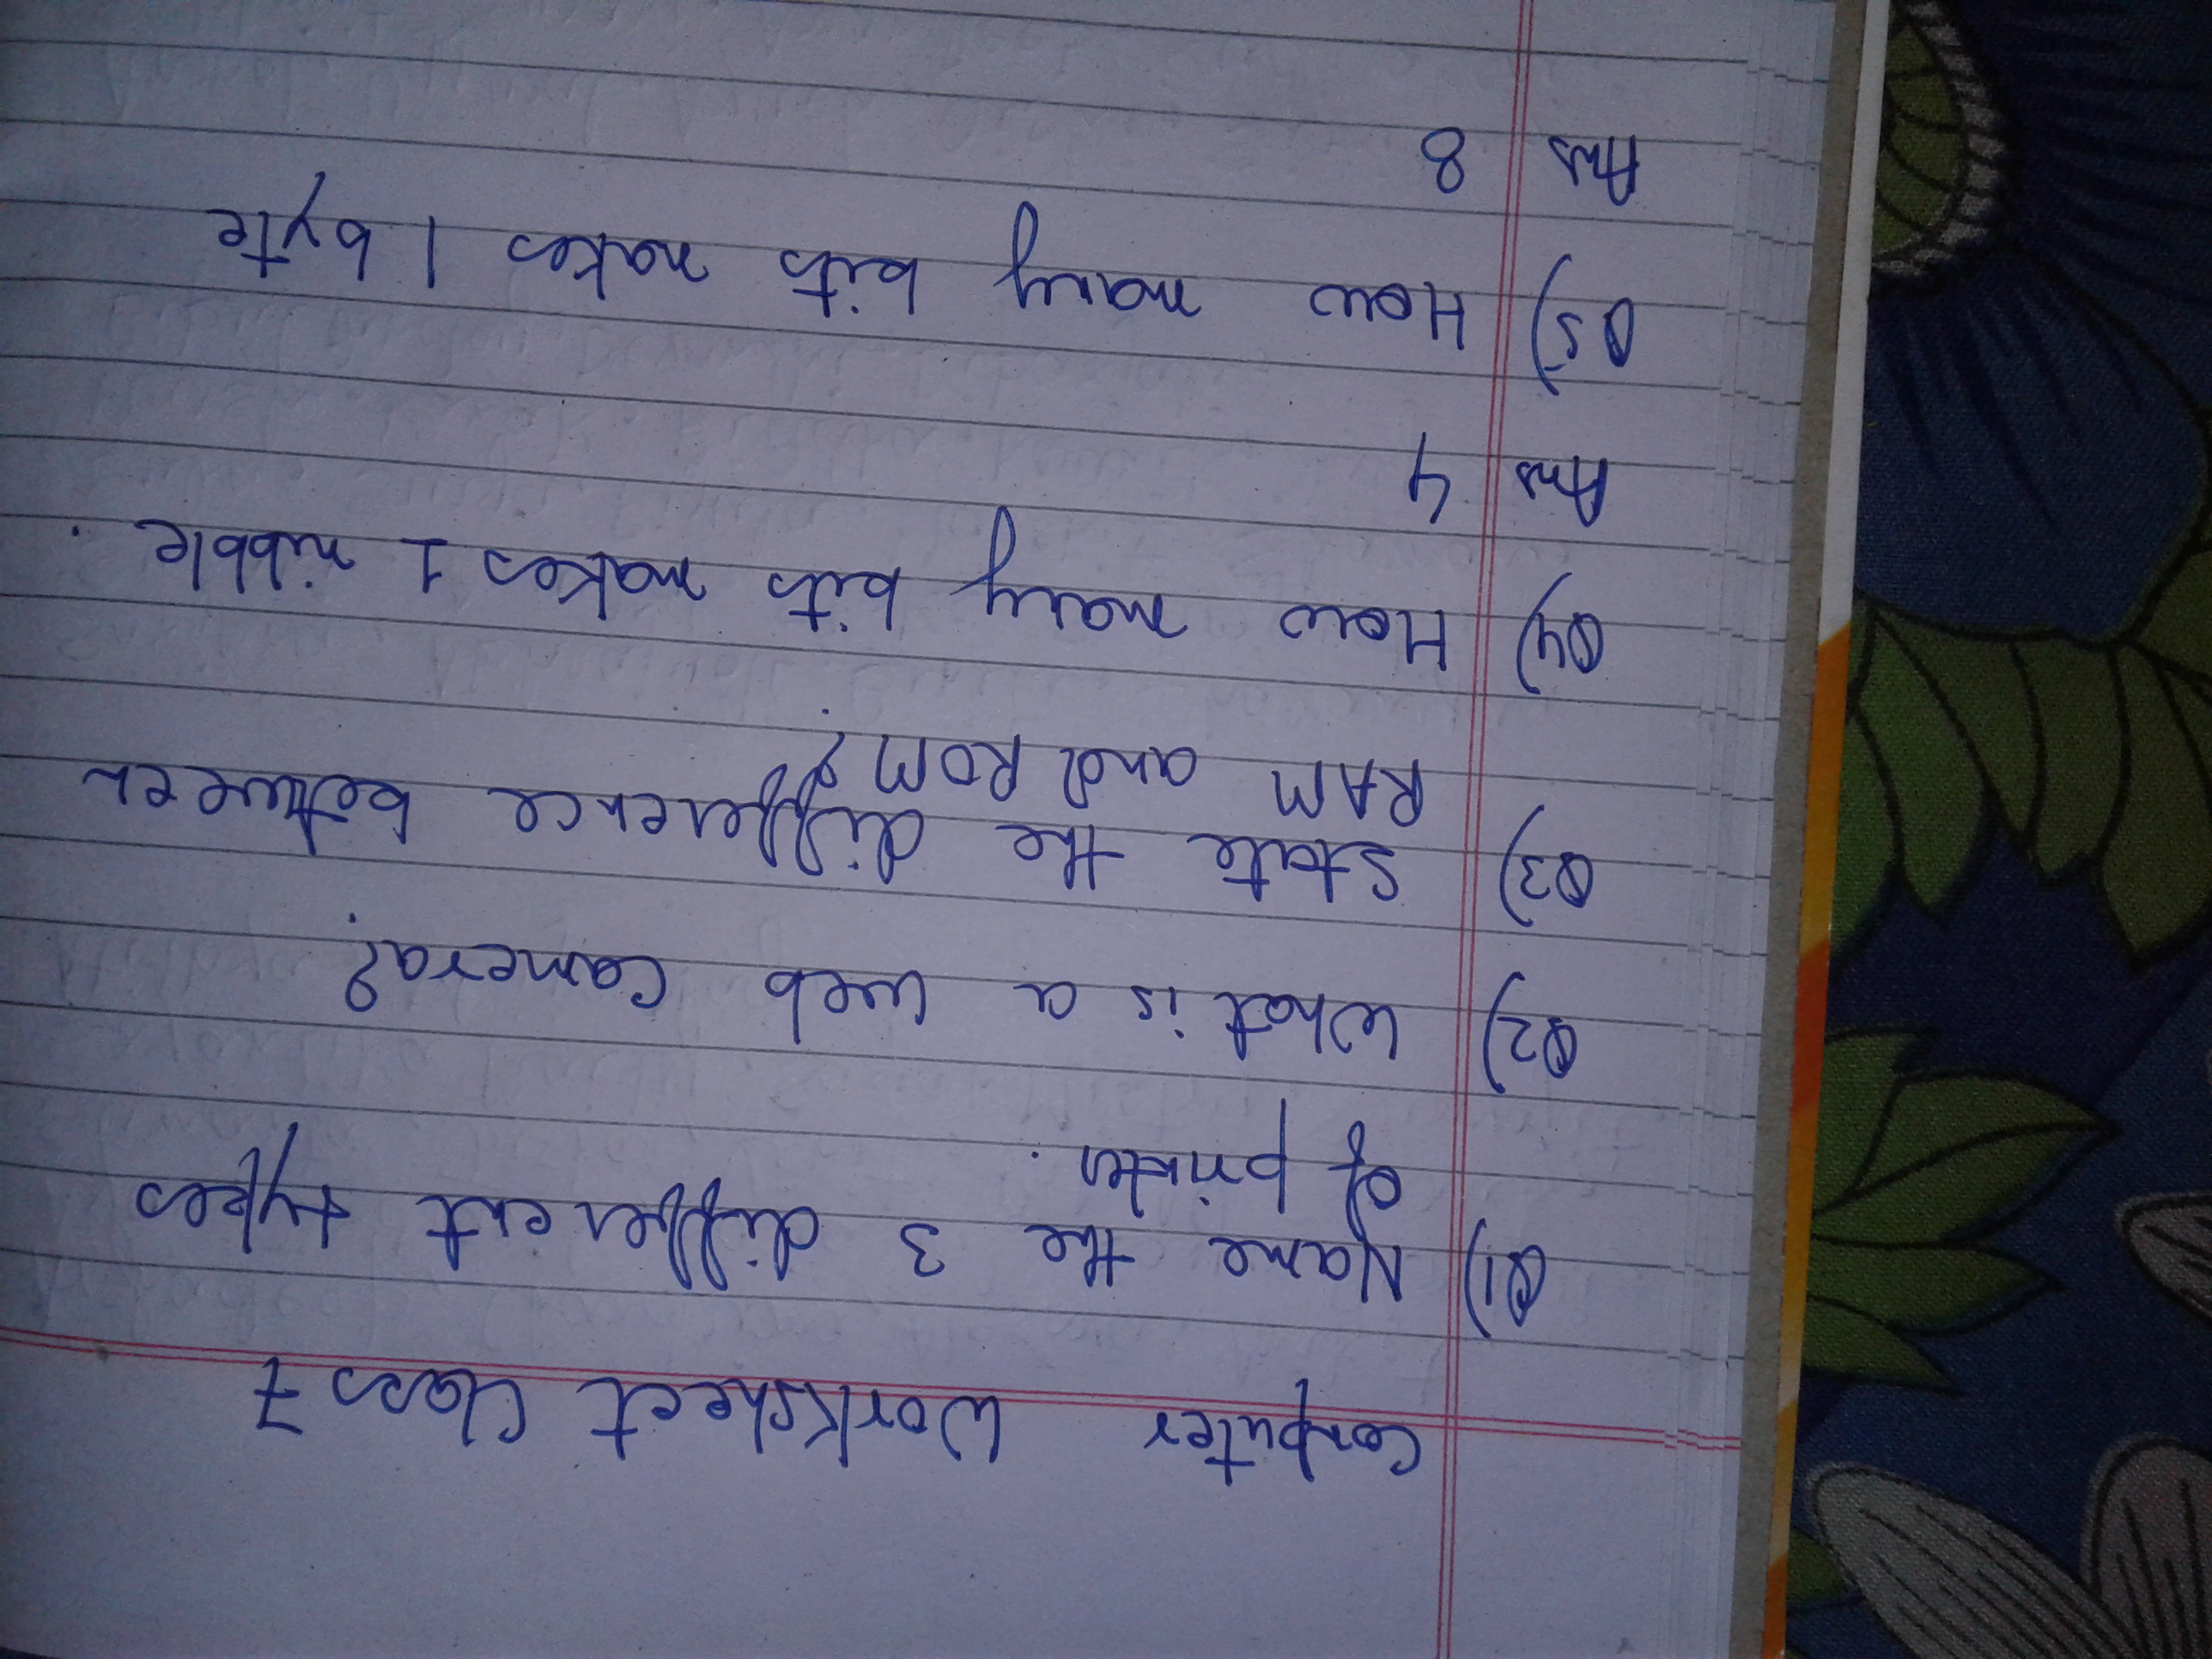 Computer Worksheet Class 7
Q1) Name the 3 different types
of printer.
Q2) What is a web camera?
Q3) State the difference between
RAM and ROM?
Q4) How many bits makes 1 nibble.
Ans 4
Q5) How many bits makes 1 byte
Ans 8